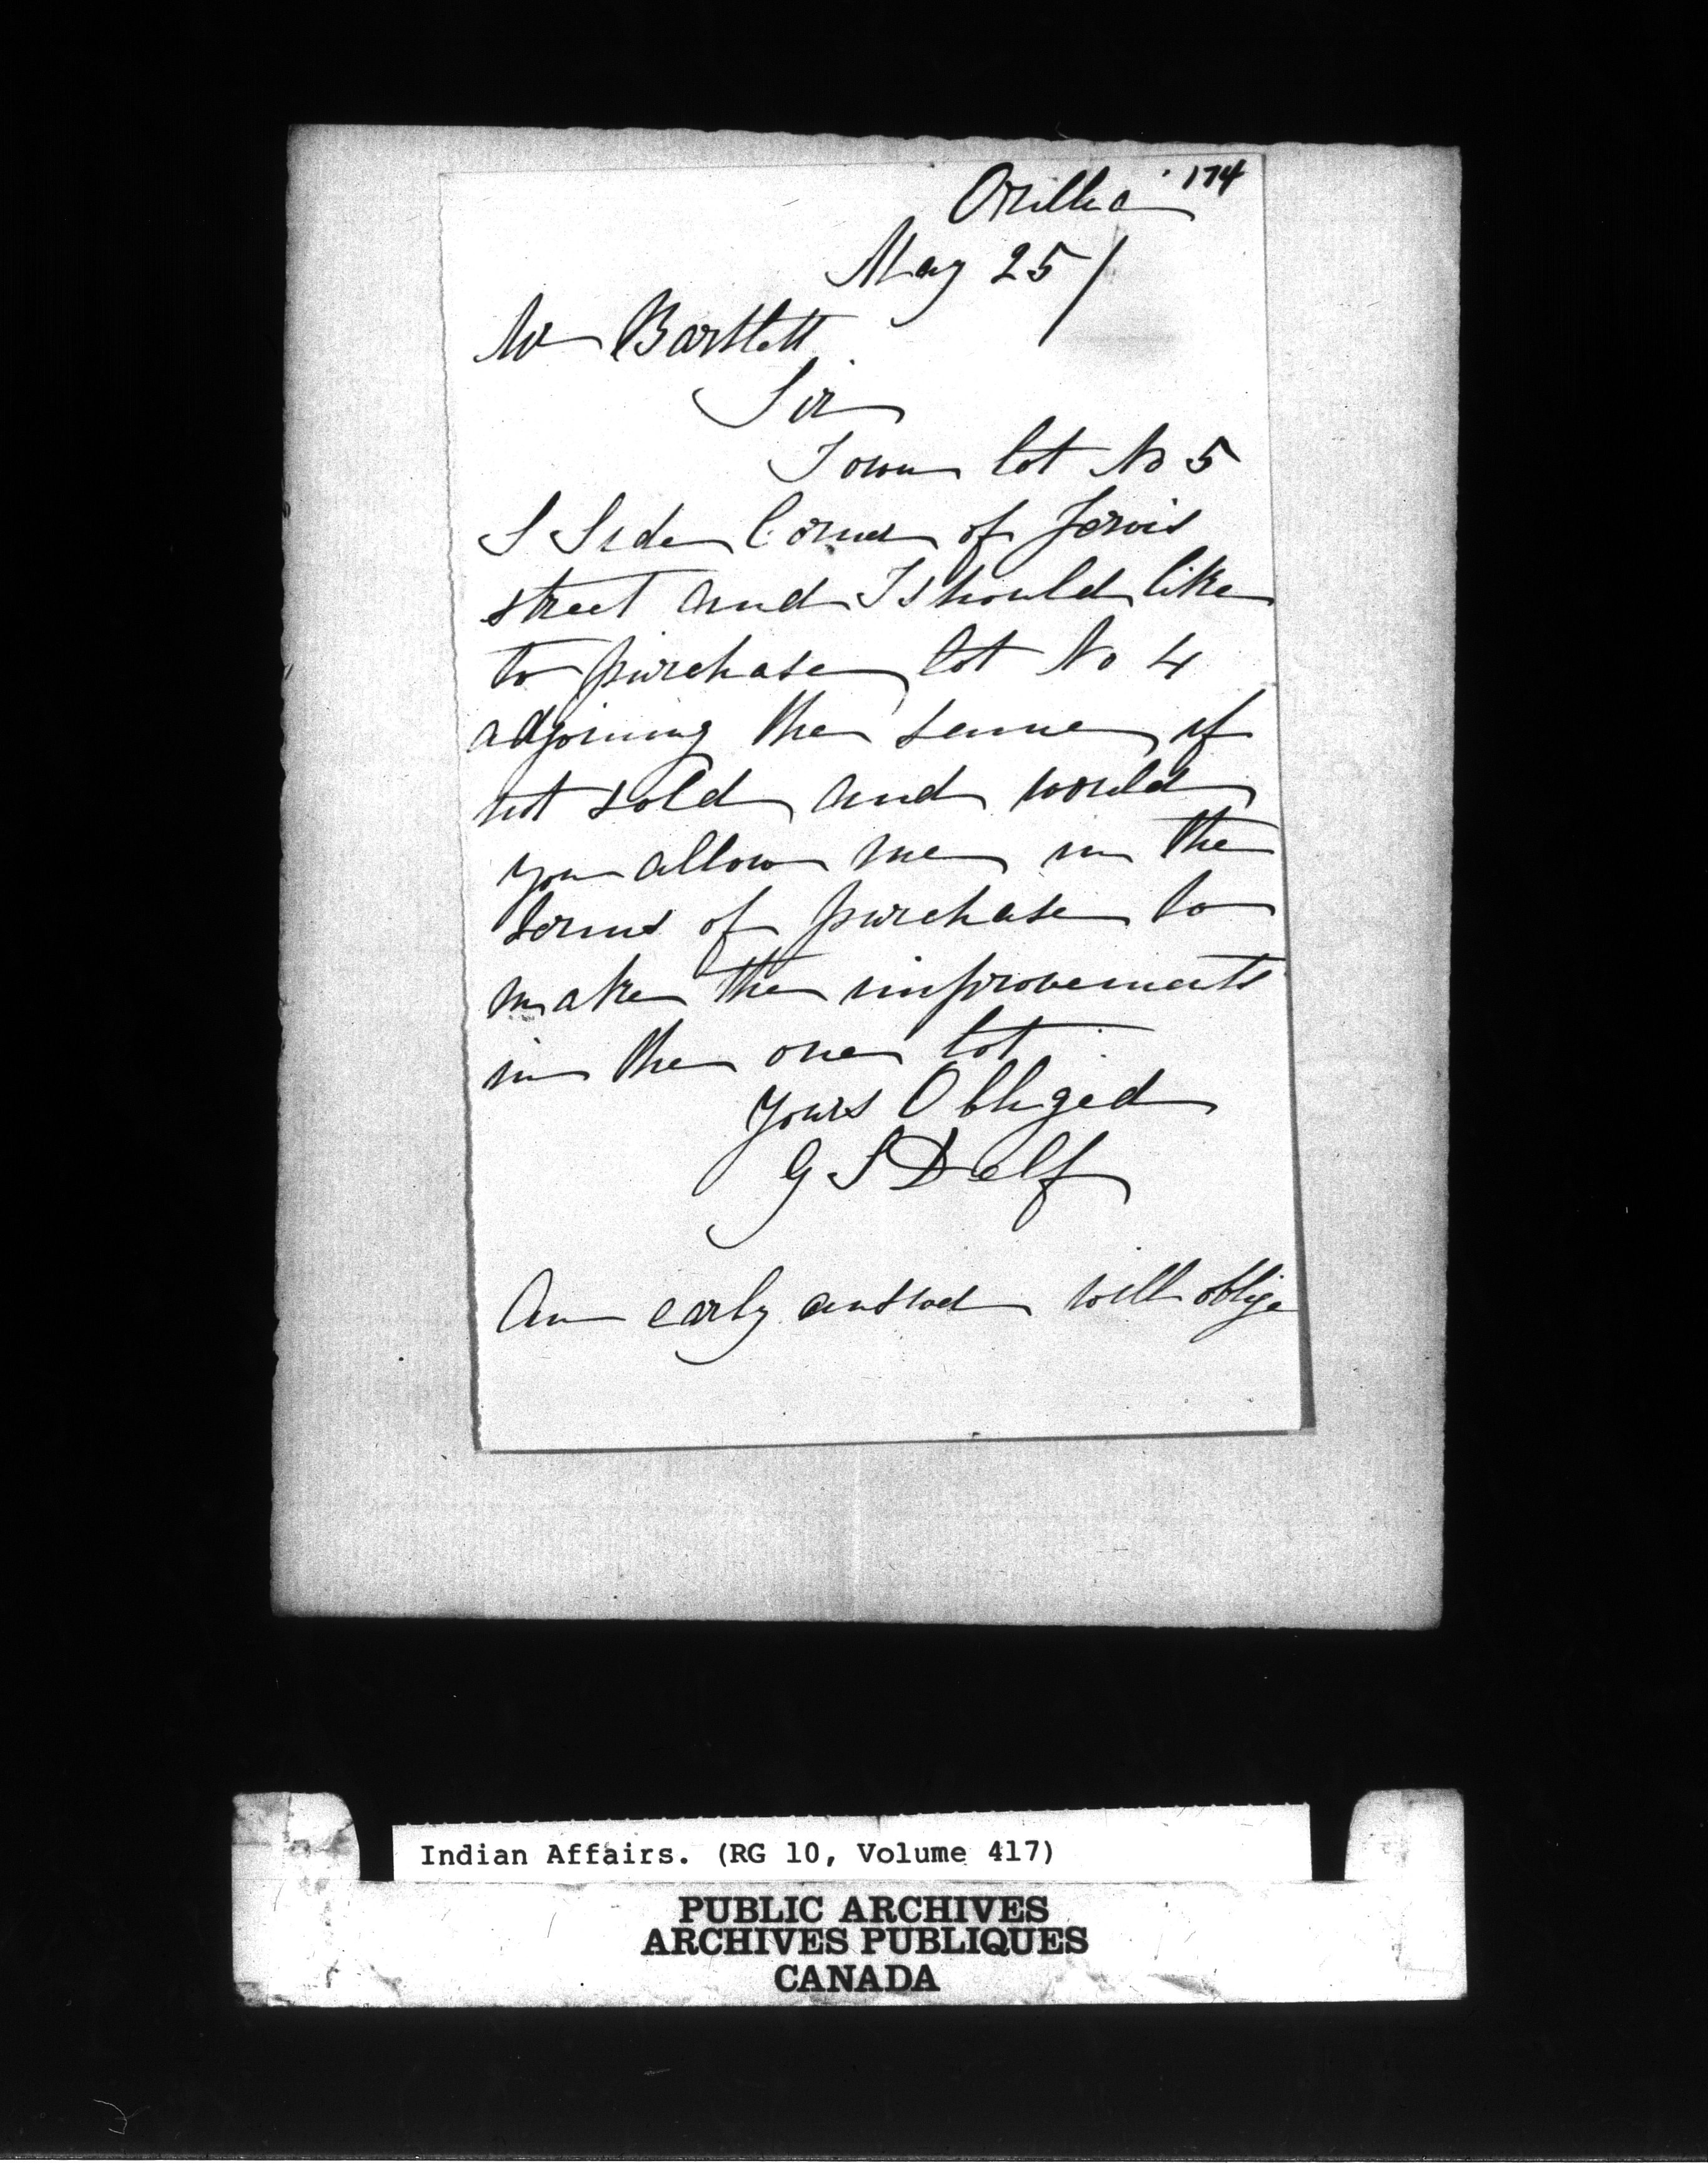 174
Orillia
May 25/
Mr Bartlett
Sir
Town lot No 5
S Side Corner of Jervis
street and I should like
to purchase lot No 4
adjoining the same if
not sold and would
you allow me in the
terms of purchase to
make the improvements
in the one lot
Yours Obliged
G S Delf
An early answer will oblige
Indian Affairs. (RG 10, Volume 417)
PUBLIC ARCHIVES
ARCHIVES PUBLIQUES
CANADA